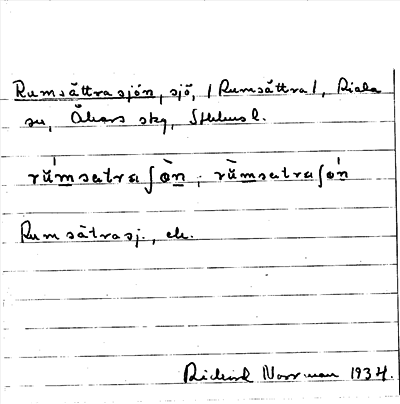 Rumsättrasjön, sjö, /Rumsättra/, Riala
sn, Åkers skg, Sthlms l.
rùmsatraʃòn, rùmsatraʃón
Rumsätrasj., ek.
Rickard Norrman 1934.